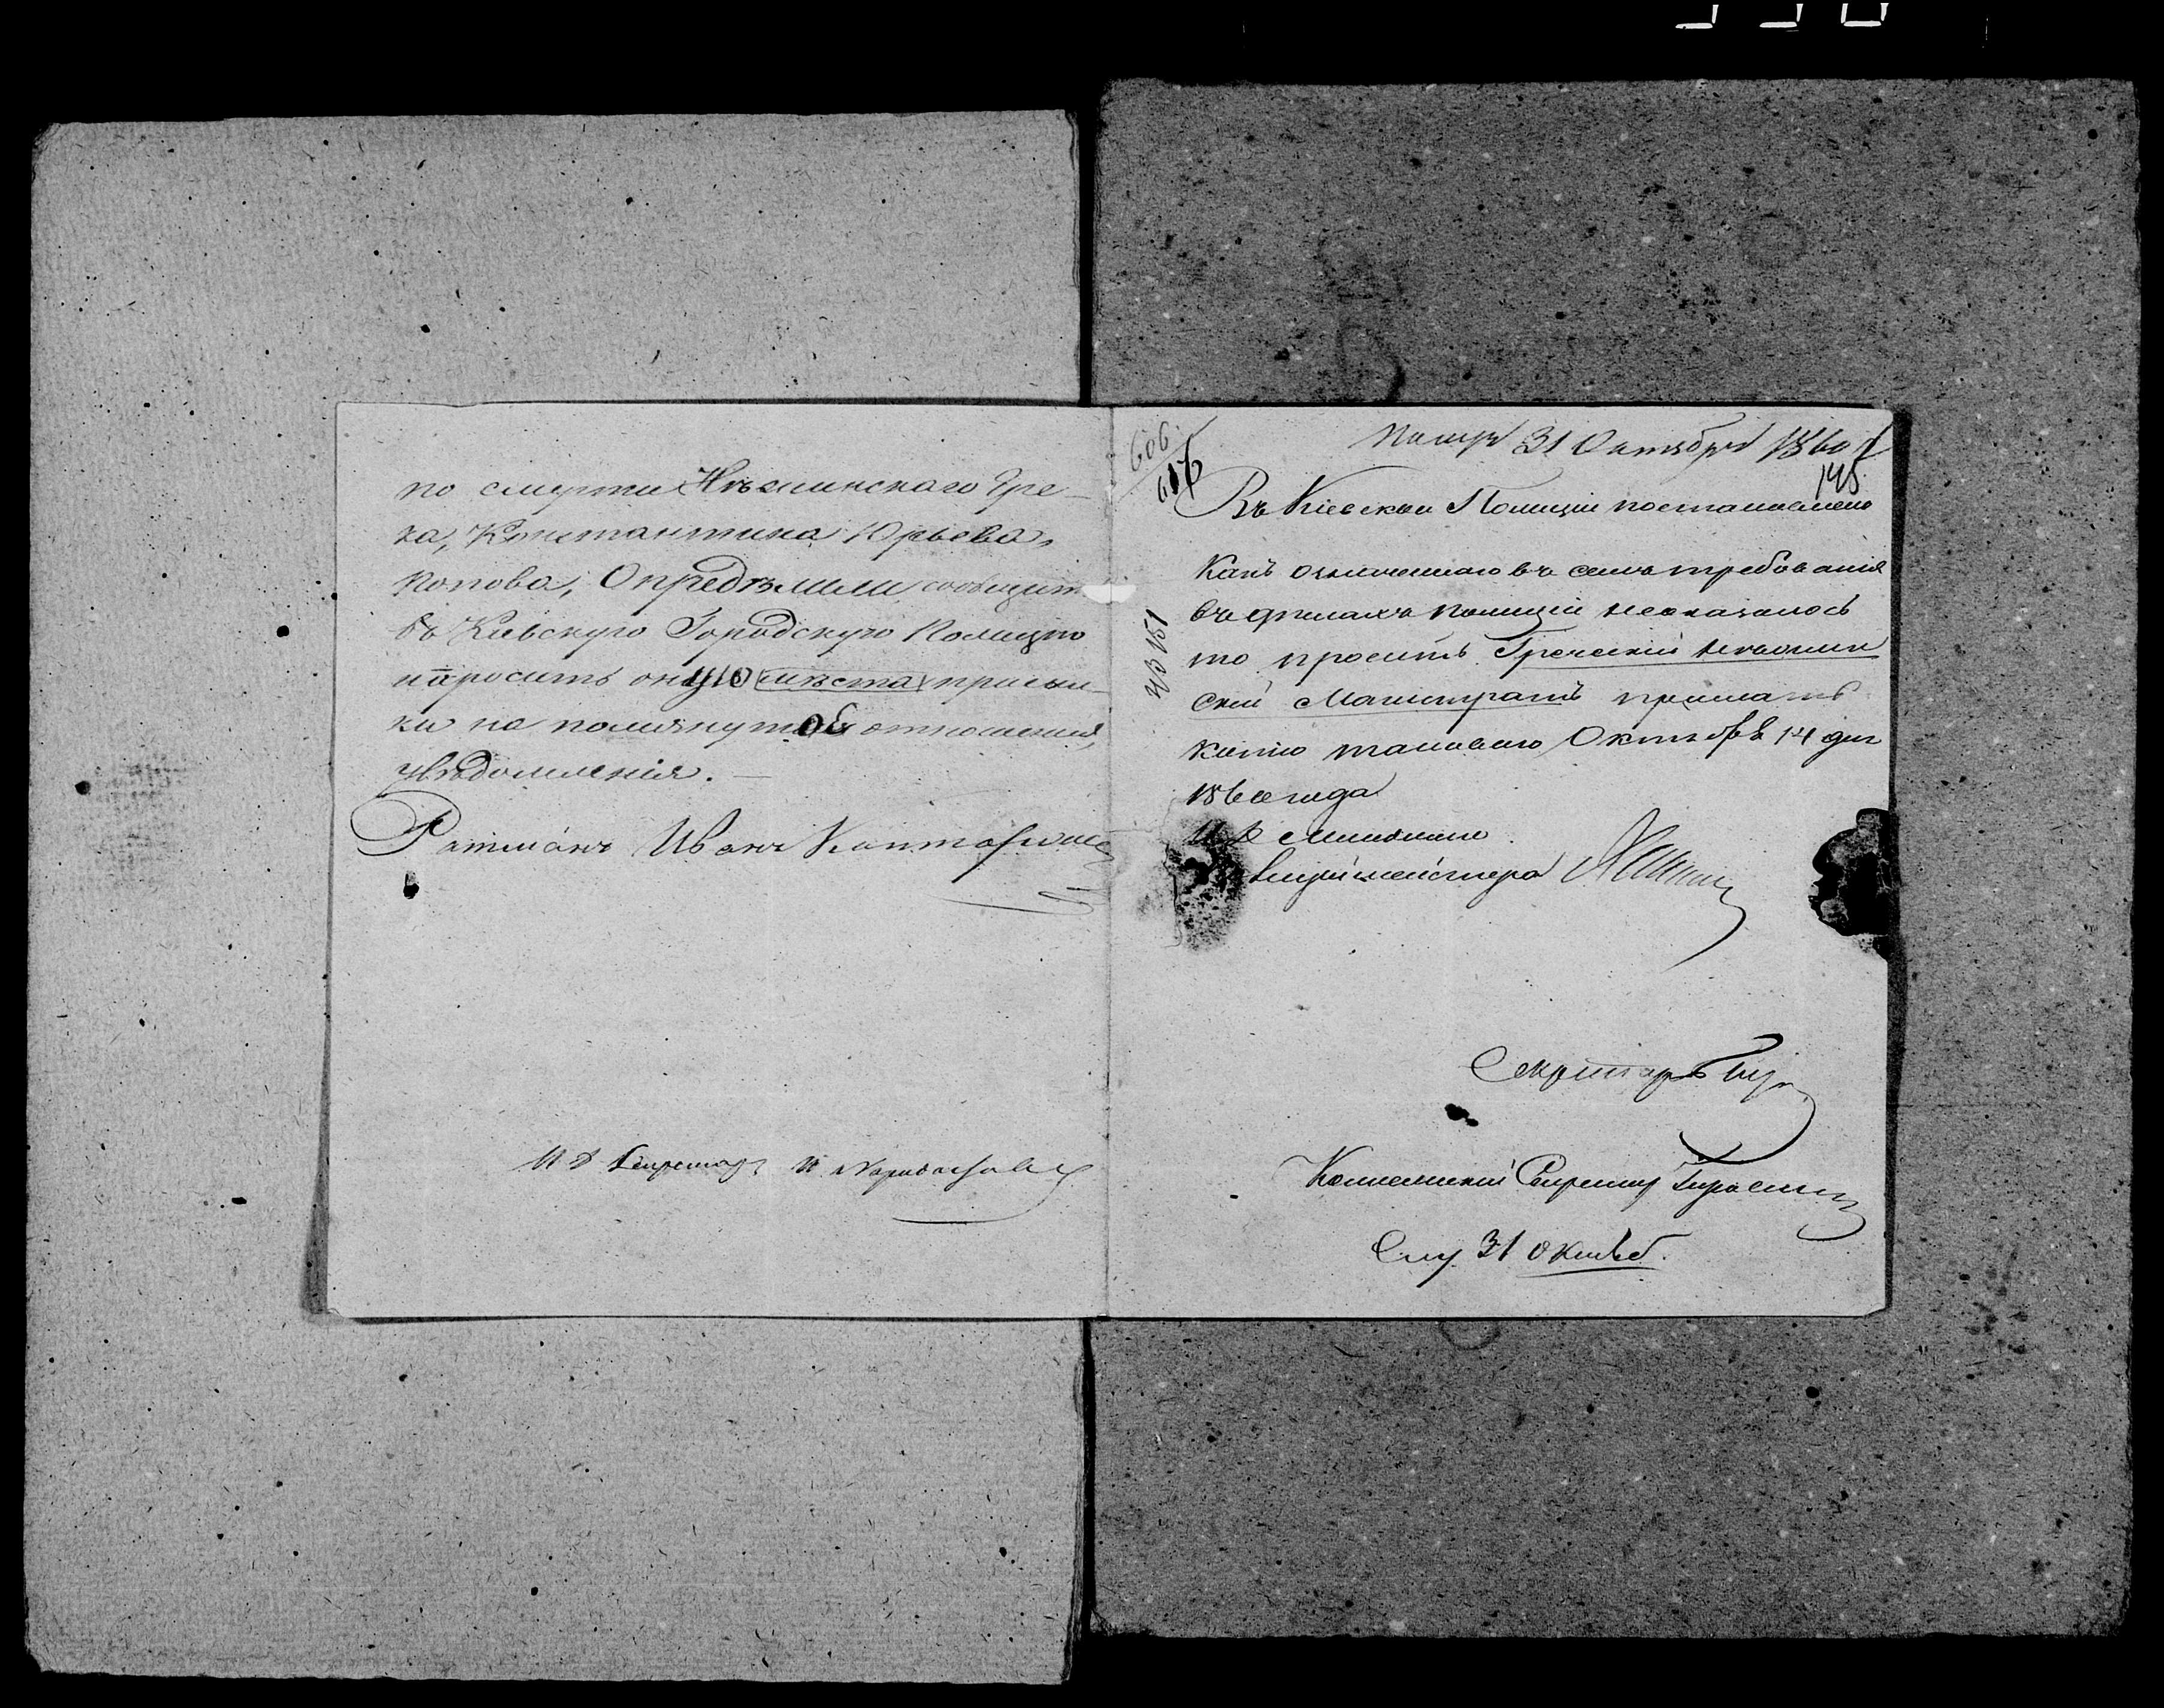 по смерти Нѣжинскаго Гре-
ка, Константина Юрьева
Попова, Опредѣлили сообщить
въ Кіевскую Городскую Полицію
и просить оную (мѣста) присыл-
ки на помянутое отношенія,
увѣдомленія. —
Ратманъ Иванъ
И Д Секретаря И
606
Получ 31 Октября 1860 г
145
Въ Кіевской Полиціи постановлено
Какъ означеннаго въ семъ требованія
въ дѣлахъ Полиціи неоказалось
то просить Греческій Нѣжин
скій Магистратъ прислать
копію таковаго Октября 14 дня
1860 года
И Д
Полицiймейстера
Секретарь
Коллежскій Секретарь
Слу 31 Октяб.